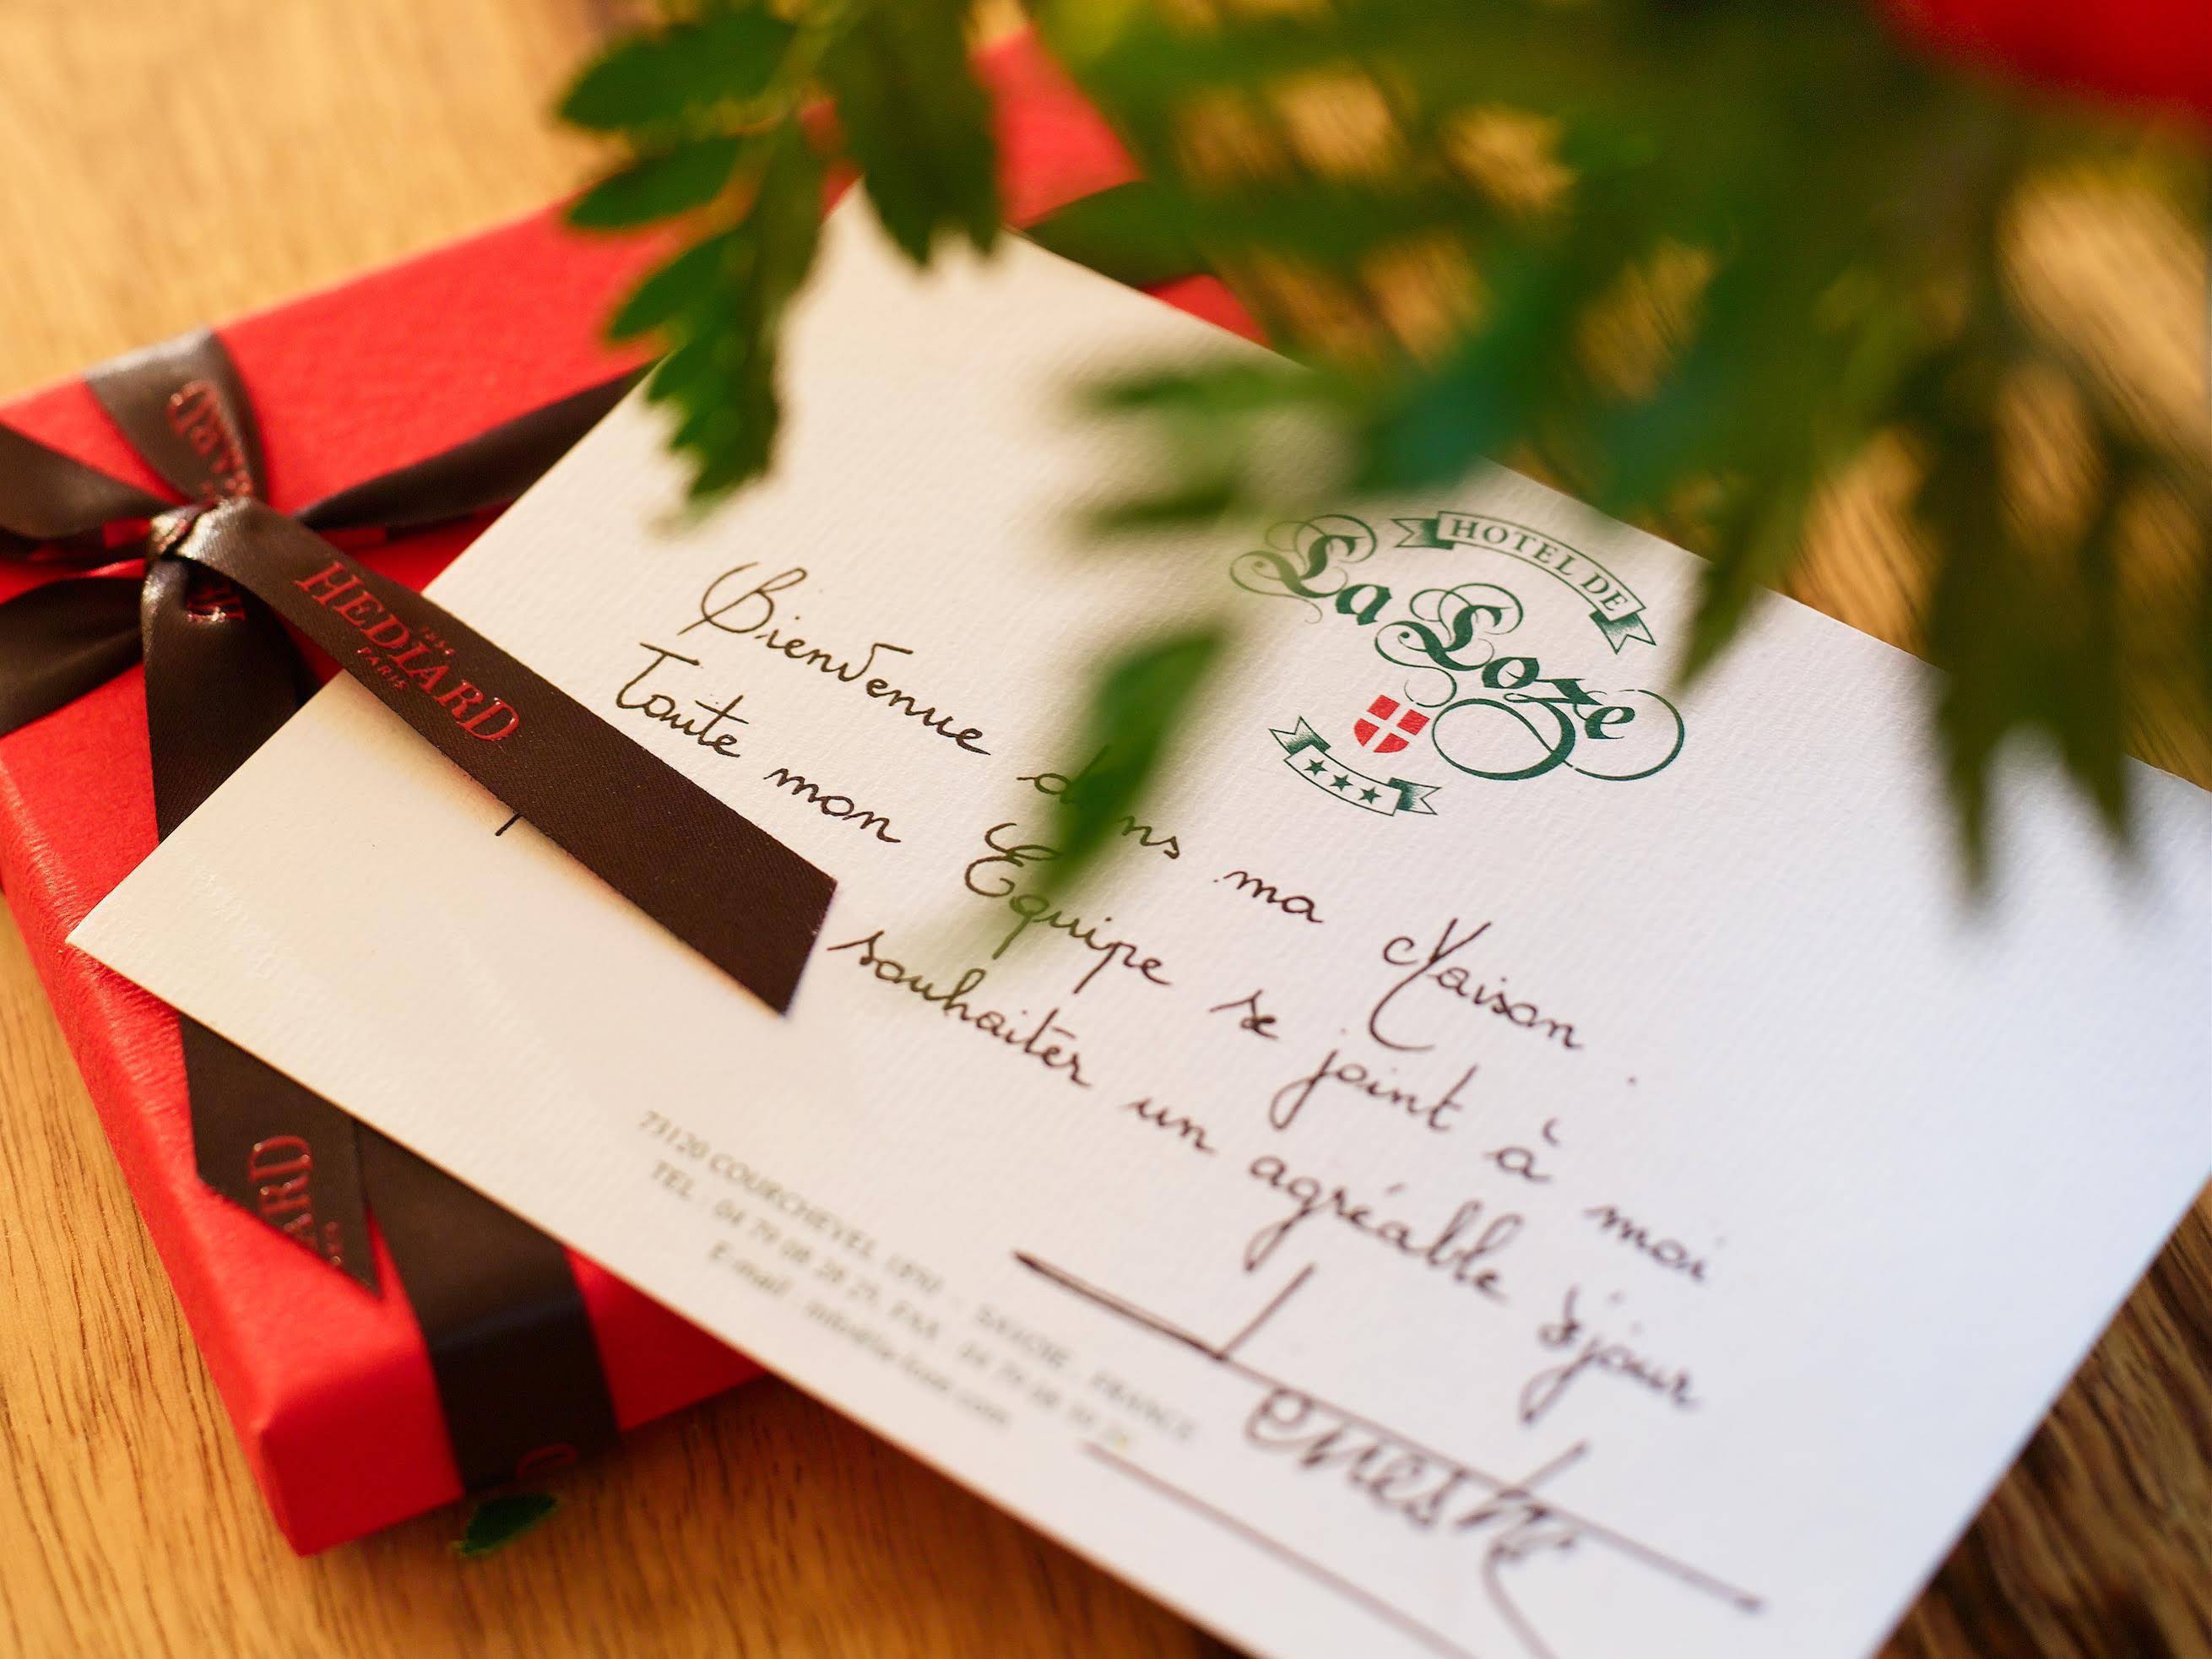 HOTEL DE
La Loze
Bienvenue dans ma Maison.
Toute mon Equipe se joint à moi
souhaiter un agréable séjour
73120 COURCHEVEL 1850 - SAVOIE - FRANCE
TEL : 04 79 08 28 25. FAX : 04 79 08
E-mail : info@la-loze.com
HEDIARD
PARIS